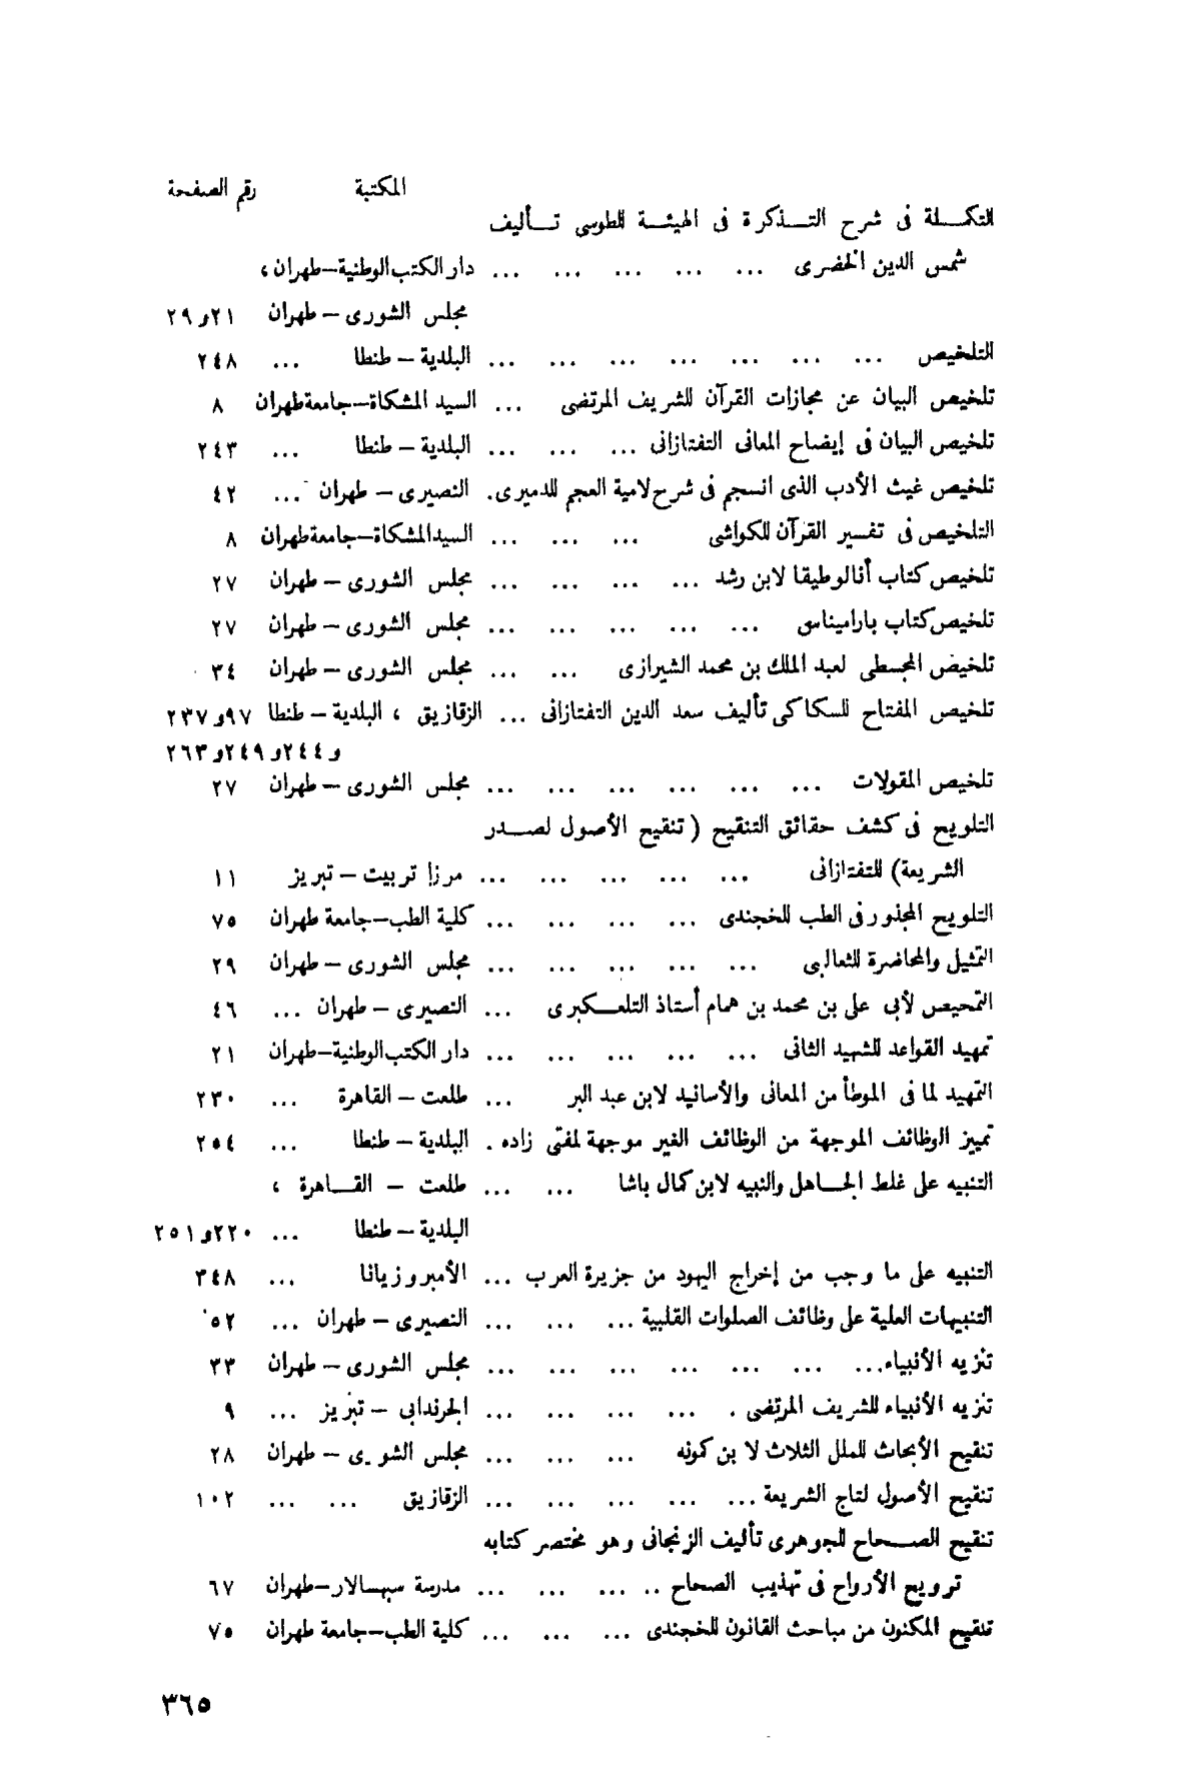 المكتبة رقم الصفحة
التكملة فى شرح التذكرة فى الهيئة للطوسى تأليف
شمس الدين الخضرى ... ... ... ... ... دار الكتب الوطنية – طهران ،
مجلس الشورى – طهران ٢١و٢٩
التلخيص ... ... ... ... ... ... ... البلدية – طنطا ... ٢٤٨
تلخيص البيان عن مجازات القرآن للشريف المرتضى ... السيد المشكاة – جامعة طهران ٨
تلخيص البيان فى إيضاح المعانى التفتازانى ... ... ... البلدية – طنطا ... ٢٤٣
تلخيص غيث الأدب الذى انسجم فى شرح لامية العجم للدميرى . النصيرى – طهران ... ٤٢
التلخيص فى تفسير القرآن للكواشى ... ... ... السيد المشكاة – جامعة طهران ٨
تلخيص كتاب أنالوطيقا لابن رشد ... ... ... ... مجلس الشورى – طهران ٢٧
تلخيص كتاب باراميناس ... ... ... ... ... مجلس الشورى – طهران ٢٧
تلخيص المجسطى لعبد الملك بن محمد الشيرازى ... ... مجلس الشورى – طهران ٣٤
تلخيص المفتاح للسكاكى تأليف سعد الدين التفتازانى ... الزقازيق ، البلدية – طنطا ٩٧و٢٣٧
و٢٤٤و٢٤٩و٢٦٣
تلخيص المقولات ... ... ... ... ... ... مجلس الشورى – طهران ٢٧
التلويح فى كشف حقائق التنقيح ( تنقيح الأصول لصدر
الشريعة) للتفتازانى ... ... ... ... ... مرزا تربيت – تبريز ١١
التلويح المجذور فى الطب للخجندى ... ... ... ... كلية الطب – جامعة طهران ٧٥
التمثيل والمحاضرة للثعالبى ... ... ... ... ... مجلس الشورى – طهران ٢٩
التمحيص لأبى على بن محمد بن همام أستاذ التلعكبرى ... النصيرى – طهران ... ٤٦
تمهيد القواعد للشهيد الثانى ... ... ... ... ... دار الكتب الوطنية – طهران ٢١
التمهيد لما فى الموطأ من المعانى والأسانيد لابن عبد البر ... طلعت – القاهرة ... ٢٣٠
تمييز الوظائف الموجهة من الوظائف الغير موجهة لمفتى زاده . البلدية – طنطا ... ٢٥٤
التنبيه على غلط الجاهل والنبيه لابن كمال باشا ... ... طلعت – القاهرة ،
البلدية – طنطا ... ٢٢٠و٢٥١
التنبيه على ما وجب من إخراج اليهود من جزيرة العرب ... الأمبروزيانا ... ٣٤٨
التنبيهات العلية على وظائف الصلوات القلبية ... ... ... النصيرى – طهران ... ٥٢
تنزيه الأنبياء ... ... ... ... ... ... ... مجلس الشورى – طهران ٣٣
تنزيه الأنبياء للشريف المرتضى . ... ... ... ... الجرندابى – تبريز ... ٩
تنقيح الأبحاث للملل الثلاث لا بن كمونه ... ... ... مجلس الشورى – طهران ٢٨
تنقيح الأصول لتاج الشريعة ... ... ... ... ... الزقازيق ... ... ١٠٢
تنقيح الصحاح للجوهرى تأليف الزنجانى وهو مختصر كتابه
ترويح الأرواح فى تهذيب الصحاح .. ... ... ... مدرسة سپهسالار – طهران ٦٧
تنقيح المكنون من مباحث القانون للخجندى ... ... ... كلية الطب – جامعة طهران ٧٥
٣٦٥